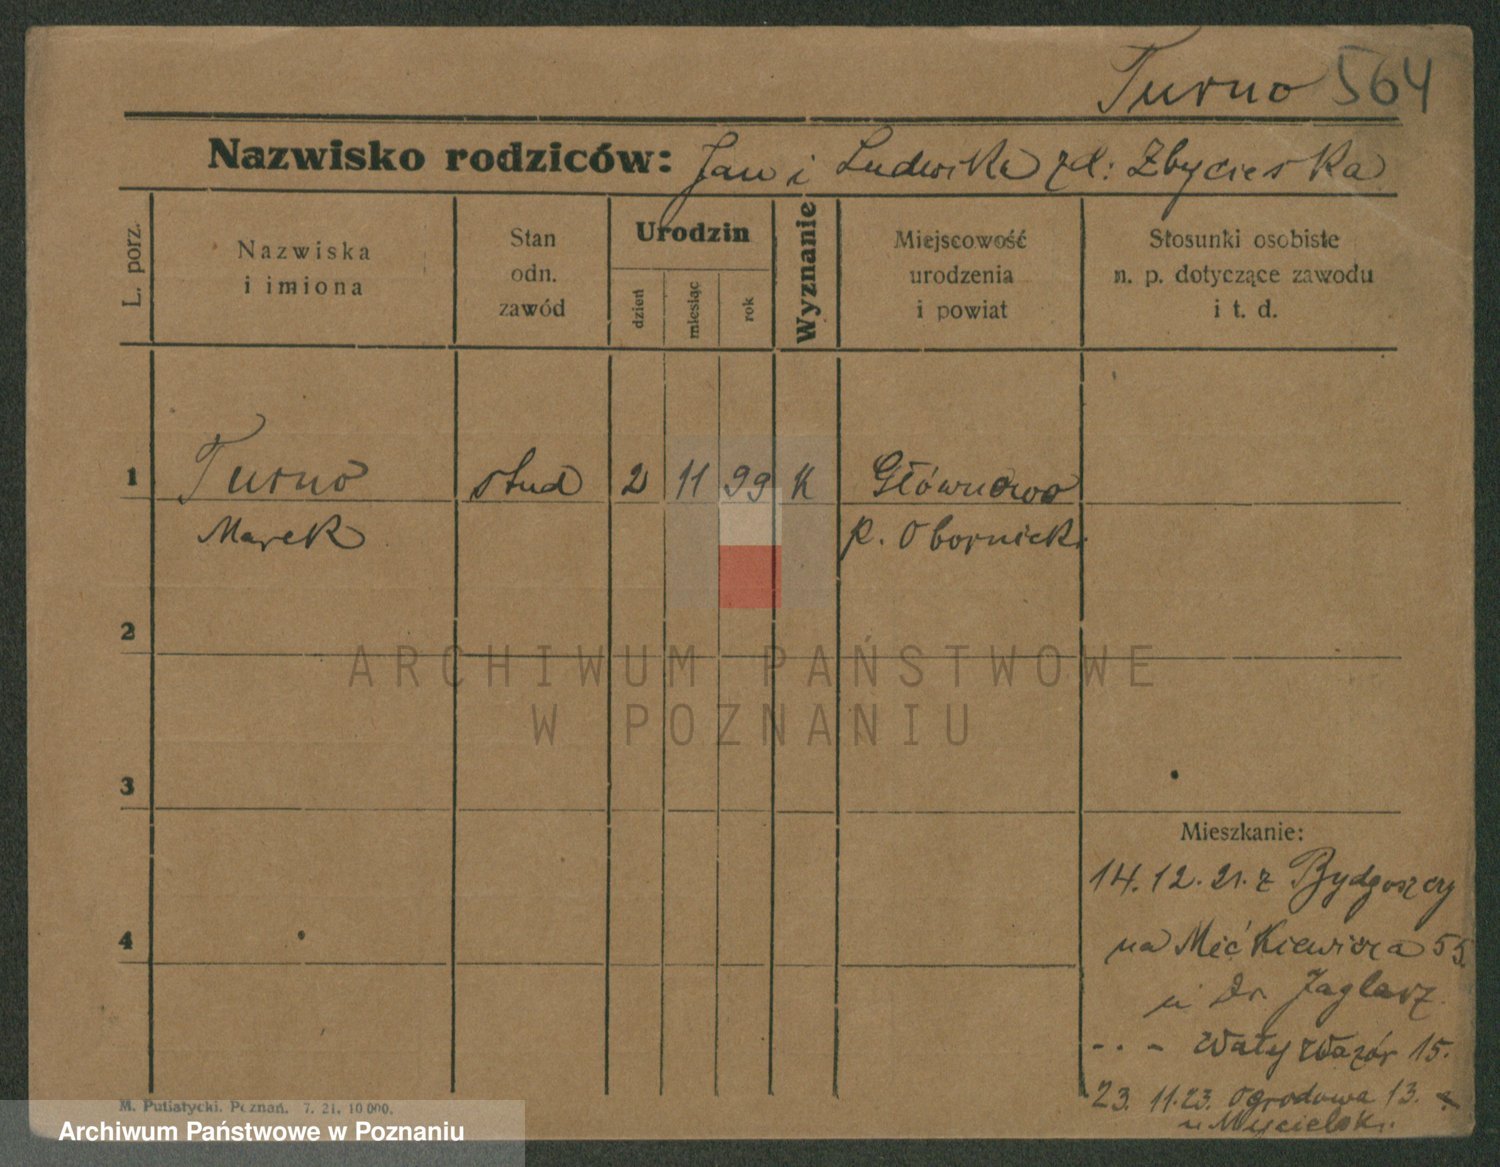 Turno 564
Nazwisko rodziców: Jan i Ludwika zd: Zbycieska
L. porz.
Nazwiska
i imiona
Stan
odn.
zawód
Urodzin
dzień
miesiąc
rok
Wyznanie
Miejscowość
urodzenia
i powiat
Stosunki osobiste
n. p. dotyczące zawodu
i t. d.
1 Turno stud 2 11 99 K Głównowo
Marek p. Obornicki
2
ARCHIWUM PAŃSTWOWE
W POZNANIU
3
Mieszkanie:
14.12.21. z Bydgoszczy
4
na Mickiewicza 55.
u Dr. Jaglarz.
- . - Wały Wazów 15.
23. 11.23. Ogrodowa 13.
u Mycielsk.
M. Putiatycki. Poznań. 7. 21. 10 000.
Archiwum Państwowe w Poznaniu